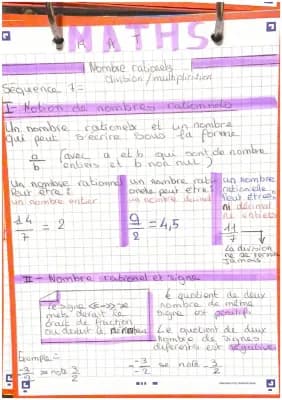 MATHS
Nombre rationels
division/multiplication
Séquence 7 :
I - Notion de nombres rationnels
Un nombre rationels et un nombre
qui peut s'écrire sous la forme
a/b (avec a et b qui sont de nombre
entiers et b non nul)
un nombre rationnel
peut être :
un nombre entier
14/7 = 2
un nombre rati-
onels peut être :
un nombre décimal
9/2 = 4,5
un nombre
rationelle
peut être :
ni décimal
ni entiers
11/7
La division
ne se termine
jamais
II - Nombre rationel et signe
Le signe <<->> se
mets devant le
trait de fraction
ou devant le
Le quotient de deux
nombre de même
signe est positif.
Le quotient de deux
nombre de signes
différents est négative
Exemple :
-3/2 se note 3/2
-3/2 se note -3/2